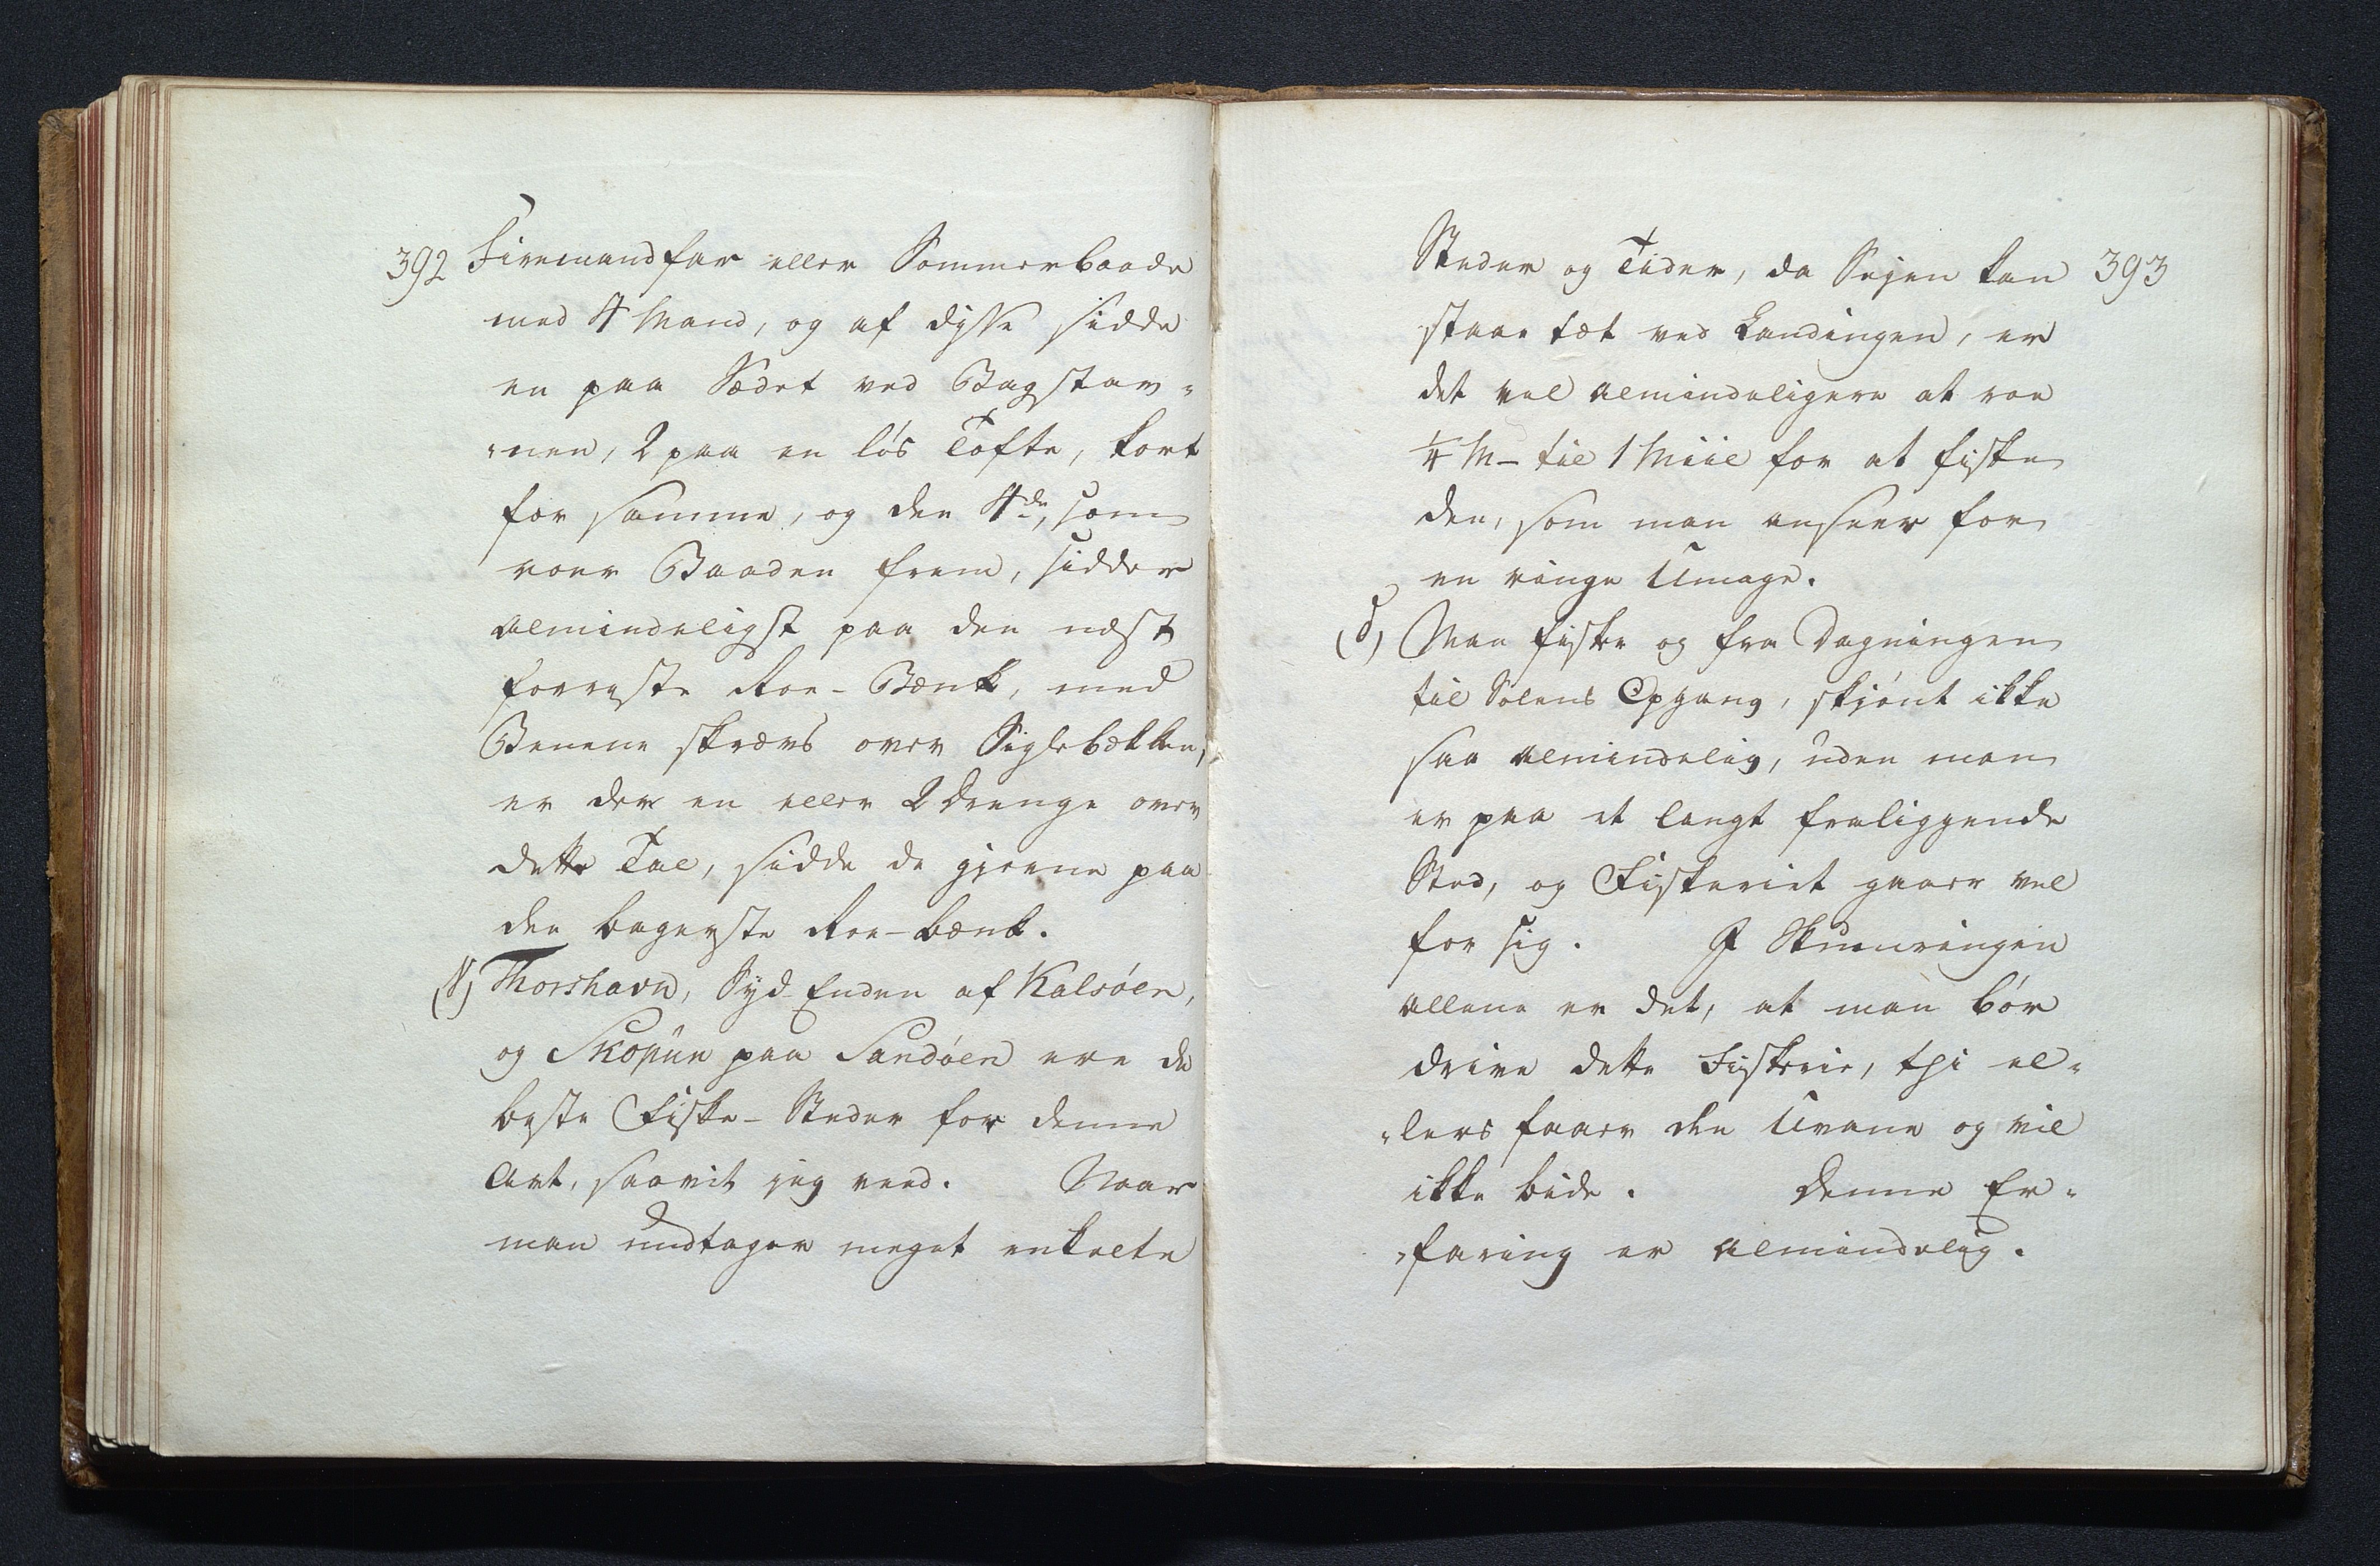 392 Firemandfar eller Sommerbaade
med 4 Mand, og af disse sidde
en paa Sædet ved Bagstav-
-nen, 2 paa en løs Tofte, kort
for samme, og den 4de, som
roer Baaden frem, sidder
almindeligst paa den næst
forreste Roe-Bænk, med
Benene skrævs over Siglebækken,
er der en eller 2 Drenge over
dette Tal, sidde de gjerne paa
den bagerste Roe-bænk.
(γ) Thorshavn, Syd-Enden af Kalsøen,
og Skopun paa Sandøen ere de
beste Fiske-Steder for denne
Art, saavit jeg veed. Naar
man undtager meget enkelte
Steder og Tider, da Sejen kan 393
staae tæt ved Landingen, er
det vel almindeligere at roe
1/4 M- til 1 Miil for at fiske
den, som man anseer for
en ringe Umage.
(δ) Man fisker og fra Dagningen
til Solens Opgang, skjønt ikke
saa almindelig, uden man
er paa et langt fraliggende
Sted, og Fiskeriet gaaer vel
for sig. I Skumringen
allene er det, at man bør
drive dette Fiskerie, thi el-
-lers faaer den Uvane og vil
ikke bide. Denne Er-
-faring er almindelig.